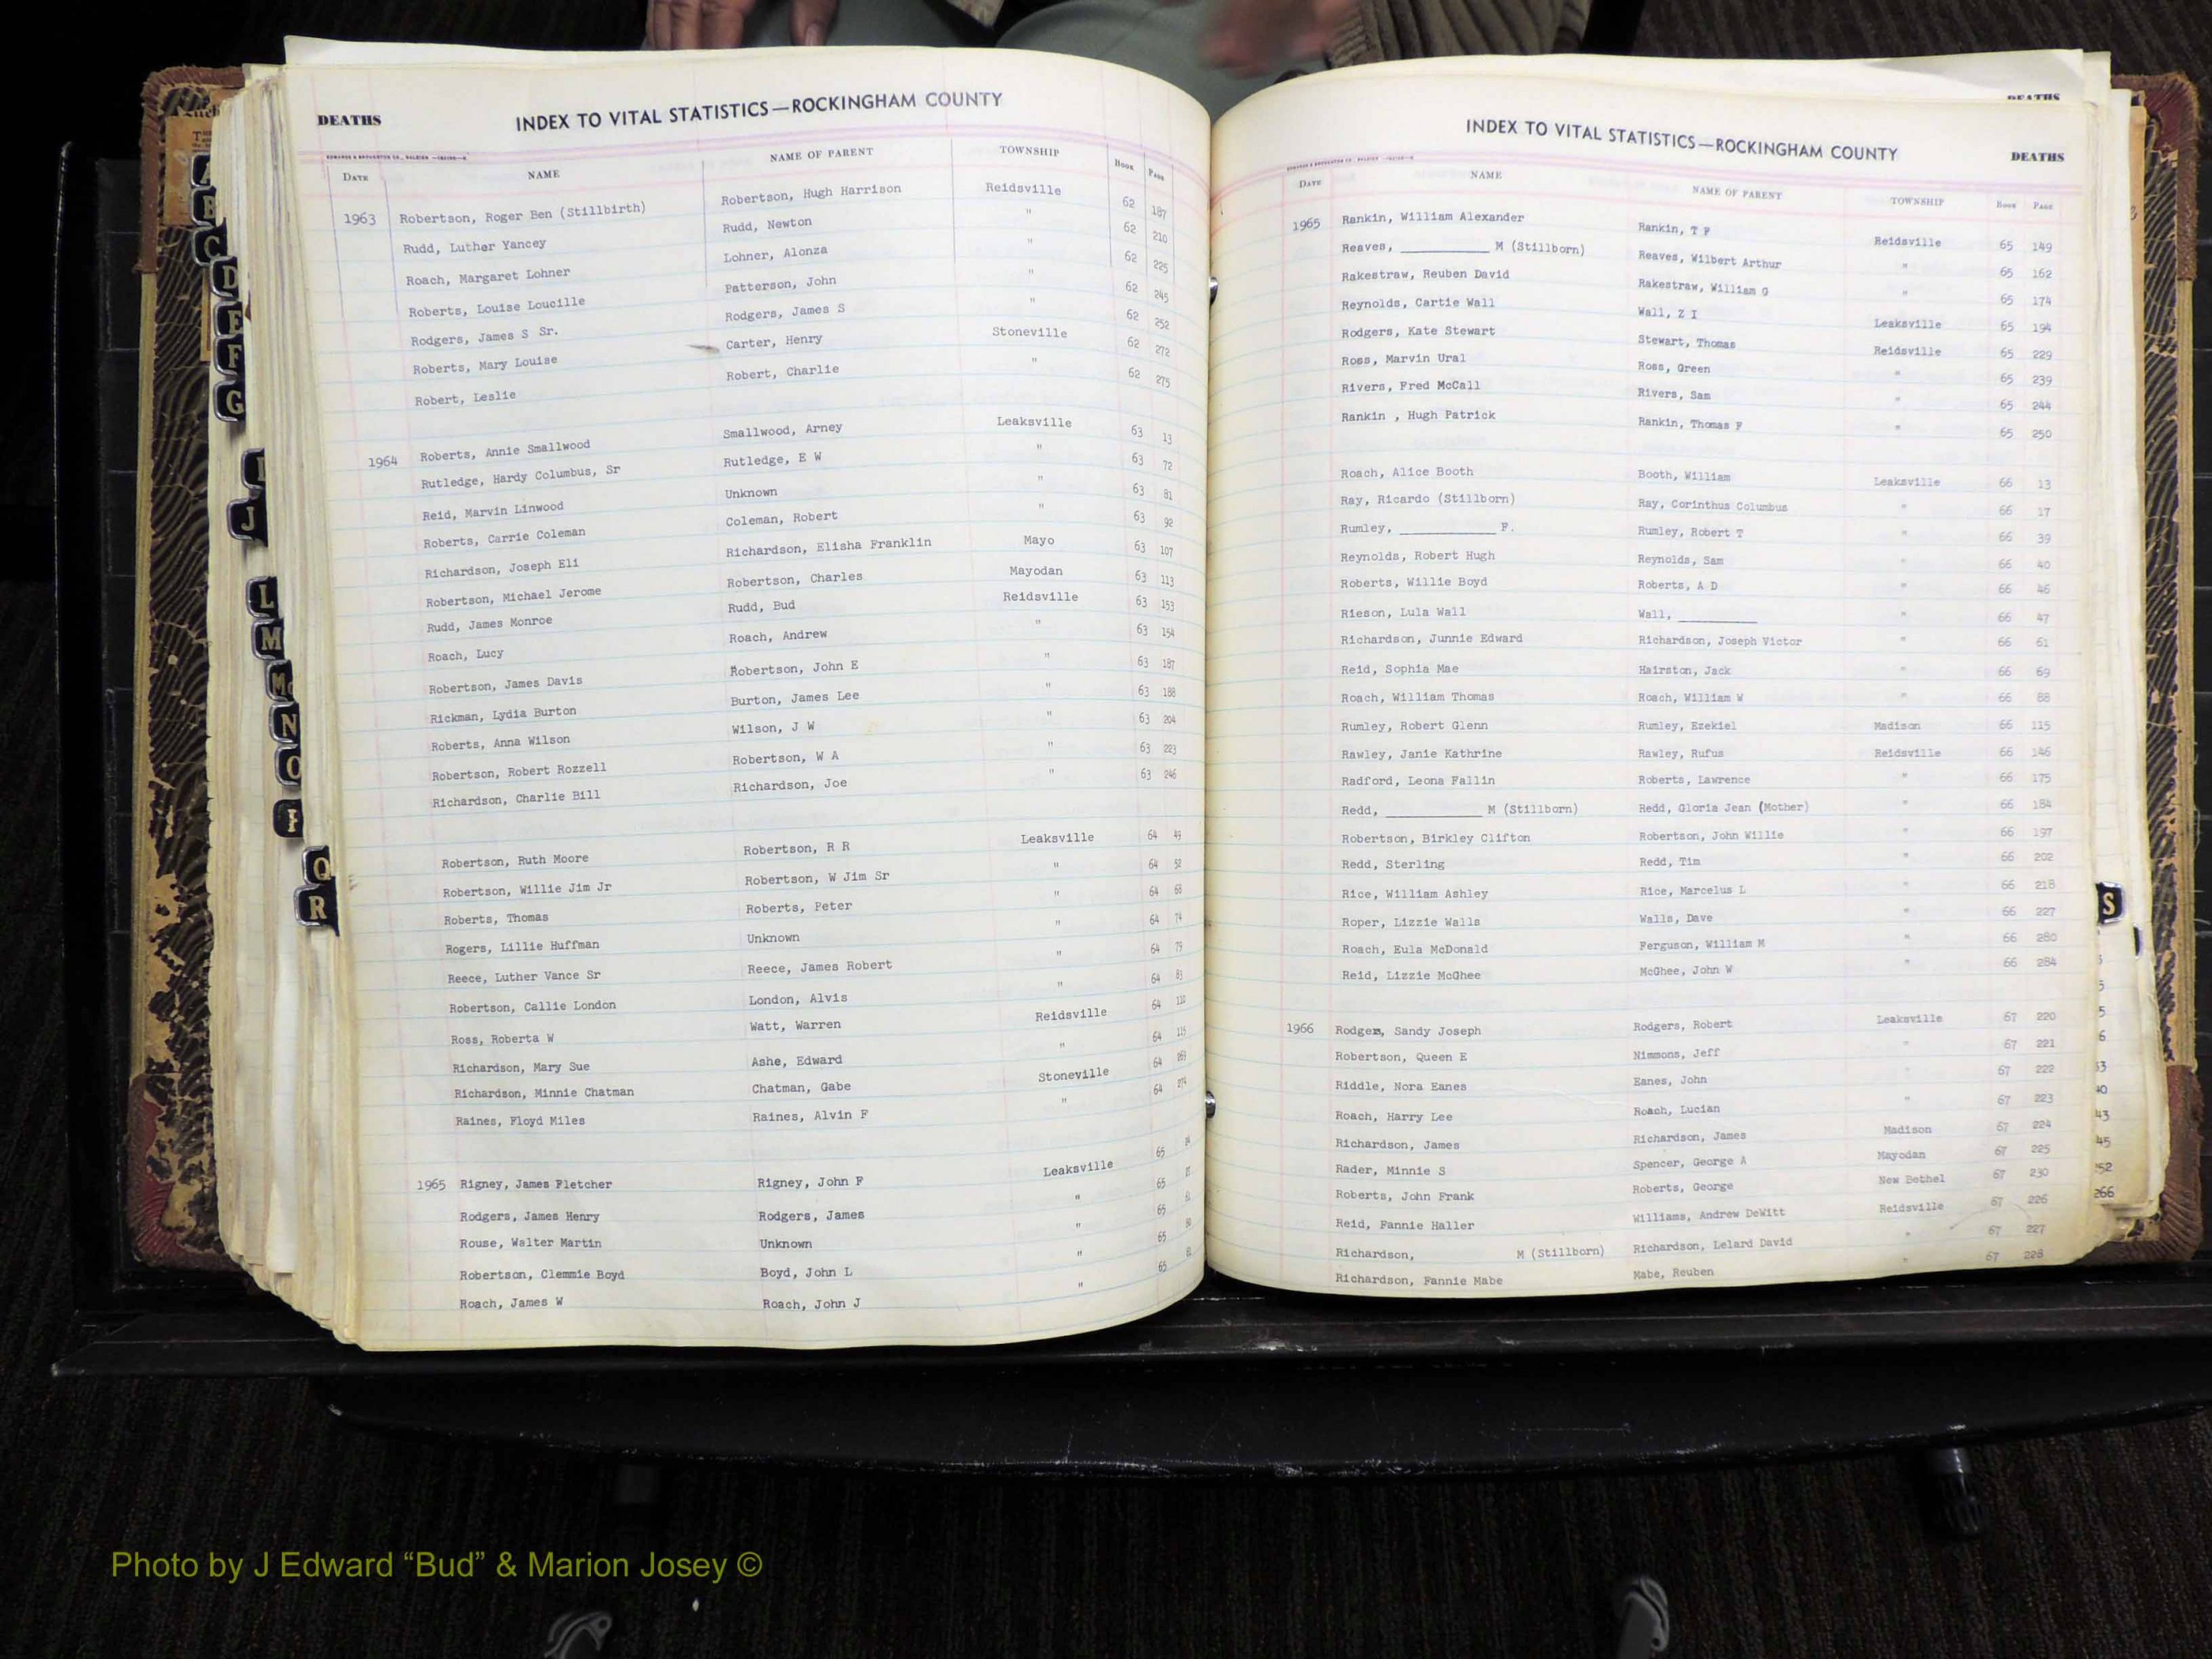 DEATHS
INDEX TO VITAL STATISTICS—ROCKINGHAM COUNTY
DATE NAME NAME OF PARENT TOWNSHIP BOOK PAGE
1963 Robertson, Roger Ben (Stillbirth) Robertson, Hugh Harrison Reidsville 62 187
Rudd, Luther Yancey Rudd, Newton " 62 210
Roach, Margaret Lohner Lohner, Alonza " 62 225
Roberts, Louise Loucille Patterson, John " 62 245
Rodgers, James S Sr. Rodgers, James S " 62 252
Roberts, Mary Louise Carter, Henry Stoneville 62 272
Robert, Leslie Robert, Charlie " 62 275
1964 Roberts, Annie Smallwood Smallwood, Arney Leaksville 63 13
Rutledge, Hardy Columbus, Sr Rutledge, E W " 63 72
Reid, Marvin Linwood Unknown " 63 81
Roberts, Carrie Coleman Coleman, Robert " 63 92
Richardson, Joseph Eli Richardson, Elisha Franklin Mayo 63 107
Robertson, Michael Jerome Robertson, Charles Mayodan 63 113
Rudd, James Monroe Rudd, Bud Reidsville 63 153
Roach, Lucy Roach, Andrew " 63 154
Robertson, James Davis Robertson, John E " 63 187
Rickman, Lydia Burton Burton, James Lee " 63 188
Roberts, Anna Wilson Wilson, J W " 63 204
Robertson, Robert Rozzell Robertson, W A " 63 223
Richardson, Charlie Bill Richardson, Joe " 63 246
Robertson, Ruth Moore Robertson, R R Leaksville 64 49
Robertson, Willie Jim Jr Robertson, W Jim Sr " 64 52
Roberts, Thomas Roberts, Peter " 64 68
Rogers, Lillie Huffman Unknown " 64 74
Reece, Luther Vance Sr Reece, James Robert " 64 79
Robertson, Callie London London, Alvis " 64 83
Ross, Roberta W Watt, Warren Reidsville 64 110
Richardson, Mary Sue Ashe, Edward " 64 115
Richardson, Minnie Chatman Chatman, Gabe Stoneville 64 269
Raines, Floyd Miles Raines, Alvin F " 64 274
1965 Rigney, James Fletcher Rigney, John F Leaksville 65
Rodgers, James Henry Rodgers, James " 65
Rouse, Walter Martin Unknown " 65
Robertson, Clemmie Boyd Boyd, John L " 65
Roach, James W Roach, John J " 65
DEATHS
INDEX TO VITAL STATISTICS—ROCKINGHAM COUNTY
DEATHS
DATE NAME NAME OF PARENT TOWNSHIP BOOK PAGE
1965 Rankin, William Alexander Rankin, T F Reidsville 65 149
Reaves, ____ M (Stillborn) Reaves, Wilbert Arthur " 65 162
Rakestraw, Reuben David Rakestraw, William G " 65 174
Reynolds, Cartie Wall Wall, Z I Leaksville 65 194
Rodgers, Kate Stewart Stewart, Thomas Reidsville 65 229
Ross, Marvin Ural Ross, Green " 65 239
Rivers, Fred McCall Rivers, Sam " 65 244
Rankin , Hugh Patrick Rankin, Thomas F " 65 250
Roach, Alice Booth Booth, William Leaksville 66 13
Ray, Ricardo (Stillborn) Ray, Corinthus Columbus " 66 17
Rumley, ____ F. Rumley, Robert T " 66 39
Reynolds, Robert Hugh Reynolds, Sam " 66 40
Roberts, Willie Boyd Roberts, A D " 66 46
Rieson, Lula Wall Wall, ____ " 66 47
Richardson, Junnie Edward Richardson, Joseph Victor " 66 61
Reid, Sophia Mae Hairston, Jack " 66 69
Roach, William Thomas Roach, William W " 66 88
Rumley, Robert Glenn Rumley, Ezekiel Madison 66 115
Rawley, Janie Kathrine Rawley, Rufus Reidsville 66 146
Radford, Leona Fallin Roberts, Lawrence " 66 175
Redd, ____ M (Stillborn) Redd, Gloria Jean (Mother) " 66 184
Robertson, Birkley Clifton Robertson, John Willie " 66 197
Redd, Sterling Redd, Tim " 66 202
Rice, William Ashley Rice, Marcelus L " 66 218
Roper, Lizzie Walls Walls, Dave " 66 227
Roach, Eula McDonald Ferguson, William M " 66 280
Reid, Lizzie McGhee McGhee, John W " 66 284
1966 Rodgers, Sandy Joseph Rodgers, Robert Leaksville 67 220
Robertson, Queen E Nimmons, Jeff " 67 221
Riddle, Nora Eanes Eanes, John " 67 222
Roach, Harry Lee Roach, Lucian " 67 223
Richardson, James Richardson, James Madison 67 224
Rader, Minnie S Spencer, George A Mayodan 67 225
Roberts, John Frank Roberts, George New Bethel 67 230
Reid, Fannie Haller Williams, Andrew DeWitt Reidsville 67 226
Richardson, M (Stillborn) Richardson, Lelard David " 67 227
Richardson, Fannie Mabe Mabe, Reuben " 67 228
A
B
C
D
E
F
G
I
J
L
M
Mc
N
O
Q
R
S
266
Photo by J Edward “Bud” & Marion Josey ©